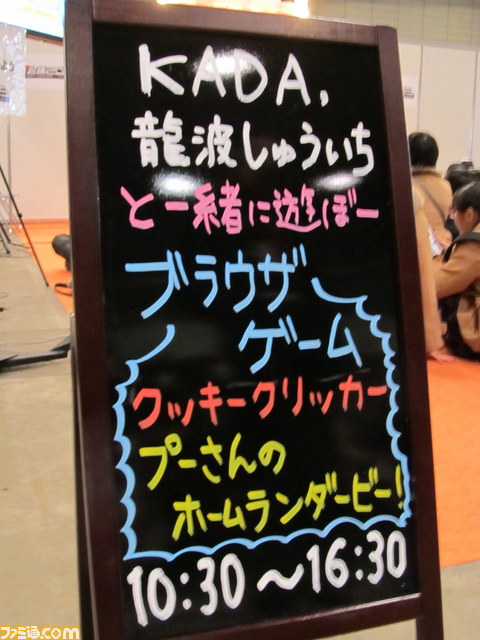 KADA,
龍波しゅういち
と一緒に遊ぼー
ブラウザ
ゲーム
クッキークリッカー
プーさんの
ホームランダービー!
10:30〜16:30
ファミ通.com